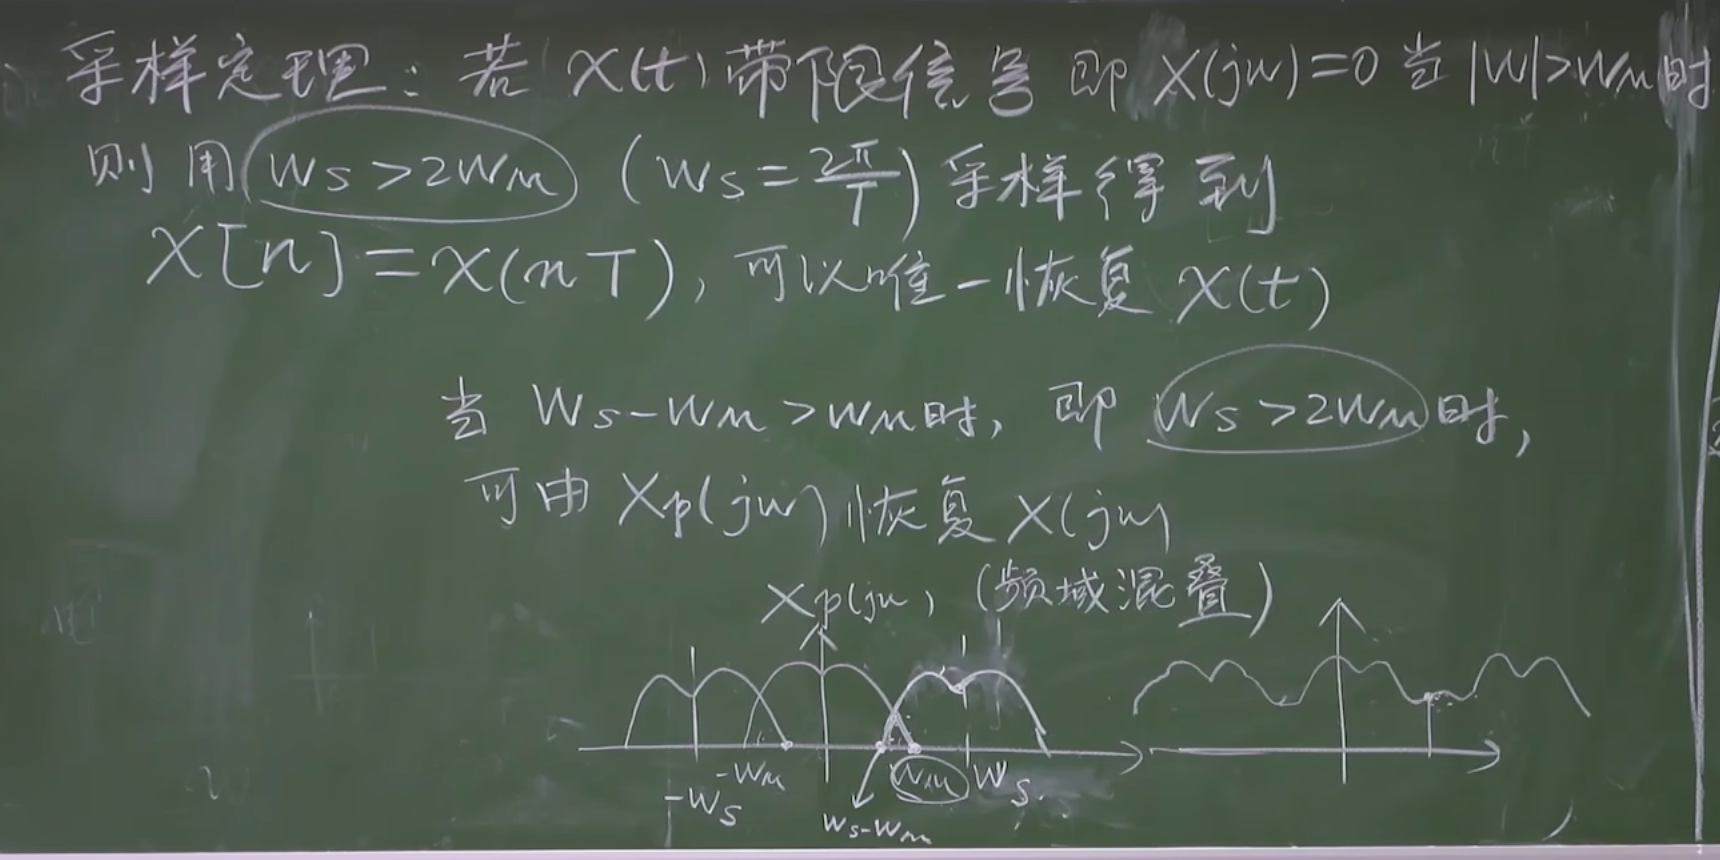 采样定理：若 X(t) 带限信号 即 X(jw)=0 当 |W|>WM时
则 用 WS>2WM (WS=2π/T) 采样得到
X[n]=X(nT), 可以唯一恢复 X(t)
当 WS-WM>WM时, 即 WS>2WM时,
可由 Xp(jw) 恢复 X(jw)
Xp(jw) (频域混叠)
-WM WM WS
-WS
WS-WM